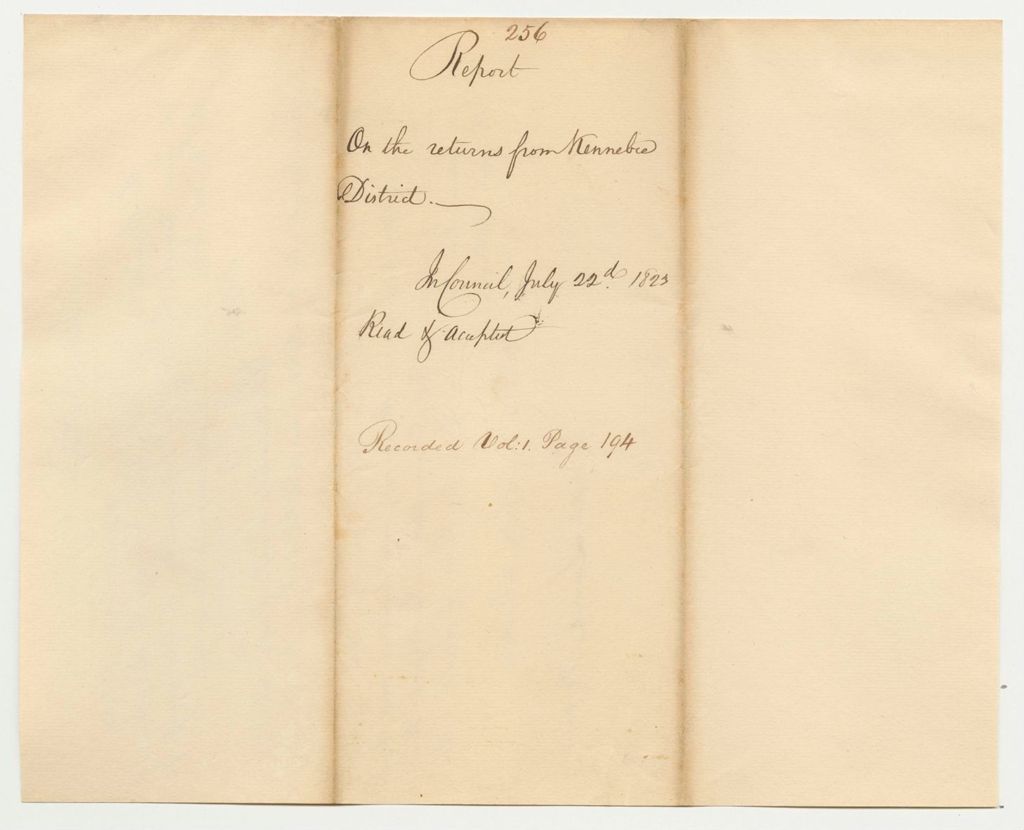 256
Report
On the returns from Kennebec
District.
In Council, July 22d. 1823
Read & accepted
Recorded Vol: 1. Page 194